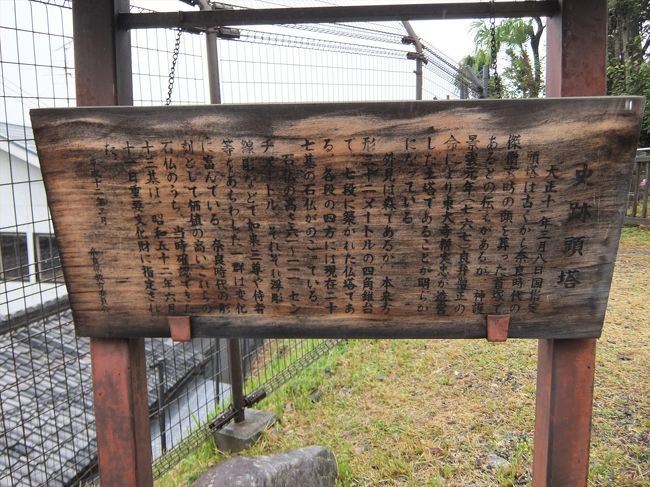 史跡 頭塔
大正十一年三月八日国指定
頭塔は古くから奈良時代の
傑僧玄昉の頭を葬った首塚で
あるとの伝もあるが、神護
景雲元年(七六七)良弁僧正の
命により東大寺僧実忠が造営
した土塔であることが明らか
になっている。
外見は森であるが、本来方
形三十二メートルの四角錐台
で、七段に築かれた仏塔であ
る。各段の四方には現在二十
七基の石仏がのこっている。
石仏の高さ
センチ
メートル、それぞれ浮彫
線彫などで如来三尊や侍者
等をあらわした
群は変化
に富んでいる。奈良時代の彫
刻として価値の高いこれらの
石仏のうち、当時確認できた
十三基は、昭和五十二年六月
十一日重要文化財に指定され
た。